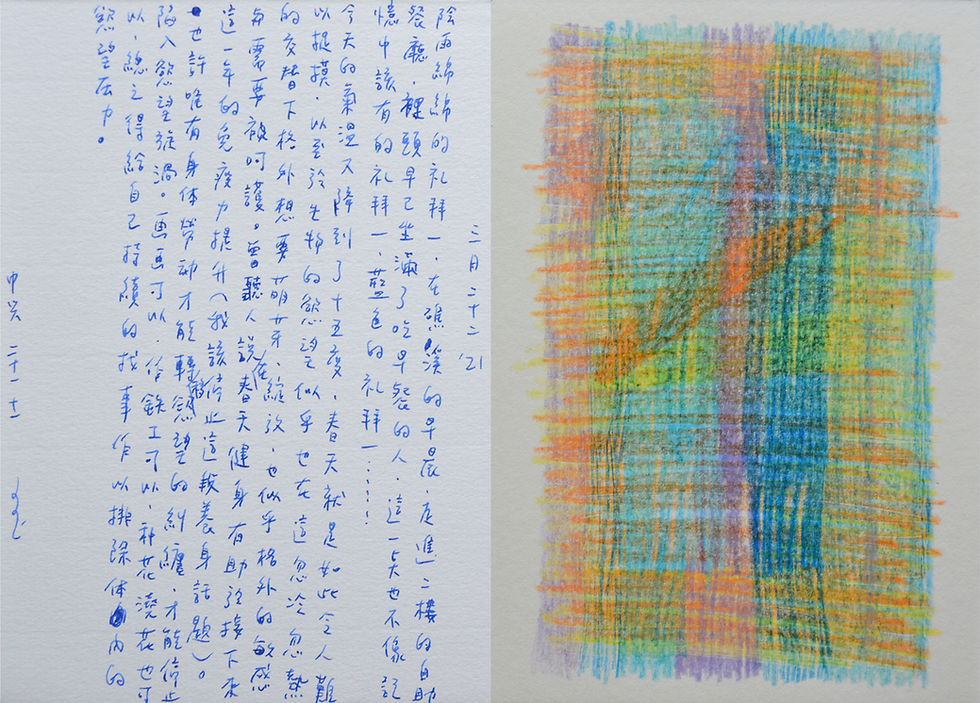 三月二十二 '21
陰雨綿綿的礼拜一,在礁溪的早晨,走進二樓的自助
餐廳,裡頭早已坐滿了吃早餐的人,這一点也不像記
憶中該有的礼拜一,藍色的礼拜一……
今天的氣温又降到了十五度,春天就是如此令人難
以捉摸,以至於生物的慾望似乎也在這忽冷忽熱
的交替下格外想要萌芽、綻放,也似乎格外的敏感
需要被呵護。曾聽人說在春天健身有助於接下來
這一年的免疫力提升(我該停止這段養身話題)。
也許唯有身体勞動才能轉移慾望的糾纏,才能停止
陷入慾望漩渦。画画可以,作鉄工可以,种花澆花也可
以,總之得給自己持續的找事作以排除体内的
慾望压力。
中兴